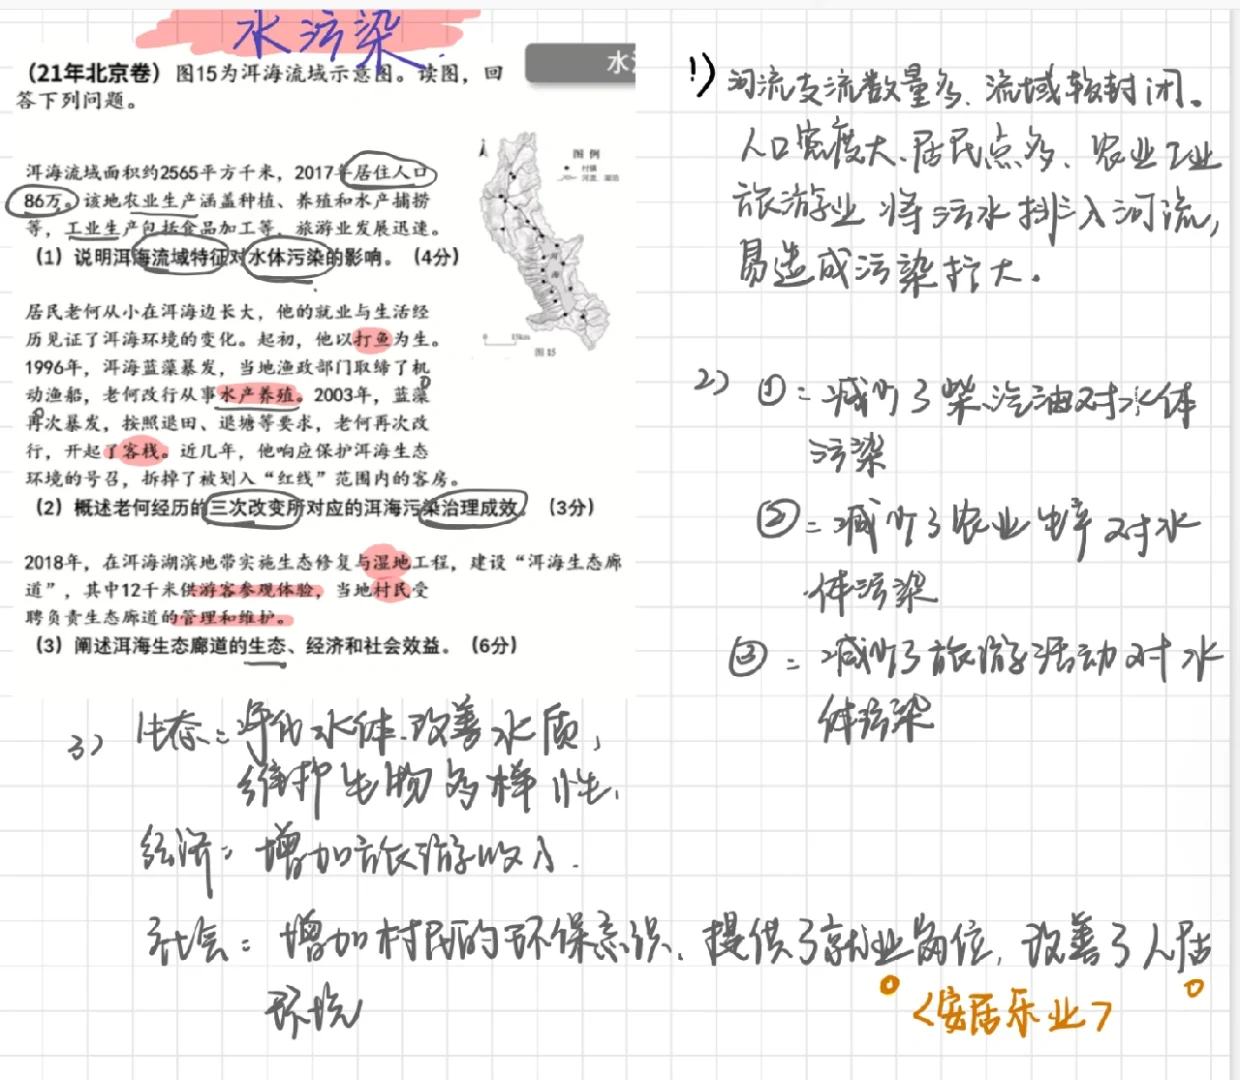 水污染
（21年北京卷）图15为洱海流域示意图。读图，回
答下列问题。
洱海流域面积约2565平方千米，2017年居住人口
86万。该地农业生产涵盖种植、养殖和水产捕捞
等，工业生产包括食品加工等，旅游业发展迅速。
（1）说明洱海流域特征对水体污染的影响。（4分）
图 例
村镇
河流、湖泊
洱
海
0 15km
图 15
居民老何从小在洱海边长大，他的就业与生活经
历见证了洱海环境的变化。起初，他以打鱼为生。
1996年，洱海蓝藻暴发，当地渔政部门取缔了机
动渔船，老何改行从事水产养殖。2003年，蓝藻
再次暴发，按照退田、退塘等要求，老何再次改
行，开起了客栈。近几年，他响应保护洱海生态
环境的号召，拆掉了被划入“红线”范围内的客房。
（2）概述老何经历的三次改变所对应的洱海污染治理成效。（3分）
2018年，在洱海湖滨地带实施生态修复与湿地工程，建设“洱海生态廊
道”，其中12千米供游客参观体验，当地村民受
聘负责生态廊道的管理和维护。
（3）阐述洱海生态廊道的生态、经济和社会效益。（6分）
水
1) 河流支流数量多、流域较封闭。
人口密度大、居民点多、农业工业
旅游业将污水排入河流，
易造成污染扩大。
2) ①：减少了柴、汽油对水体
污染
②：减少了农业生产对水
体污染
③：减少了旅游活动对水
体污染
3) 生态：净化水体、改善水质，
维护生物多样性.
经济：增加旅游收入.
社会：增加村民的环保意识、提供了就业岗位，改善了人居
环境
<安居乐业>